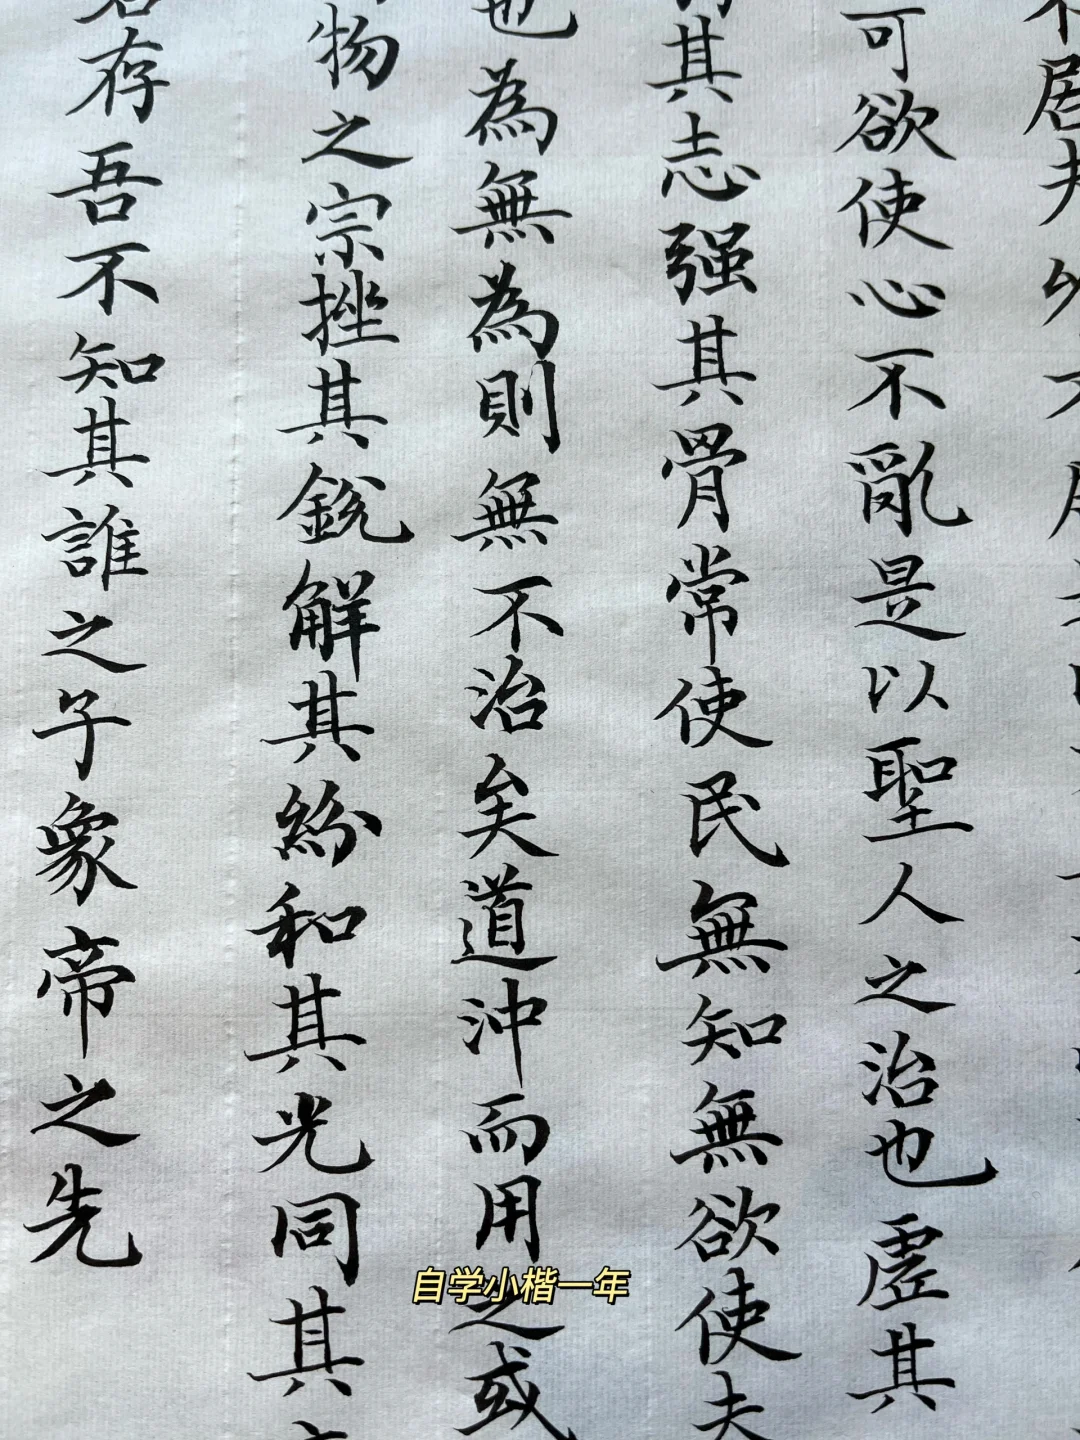 居夫
可欲使心不亂是以聖人之治也虛其
其志强其骨常使民無知無欲使夫
也為無為則無不治矣道沖而用之或
物之宗挫其銳解其紛和其光同其
存吾不知其誰之子象帝之先
自学小楷一年